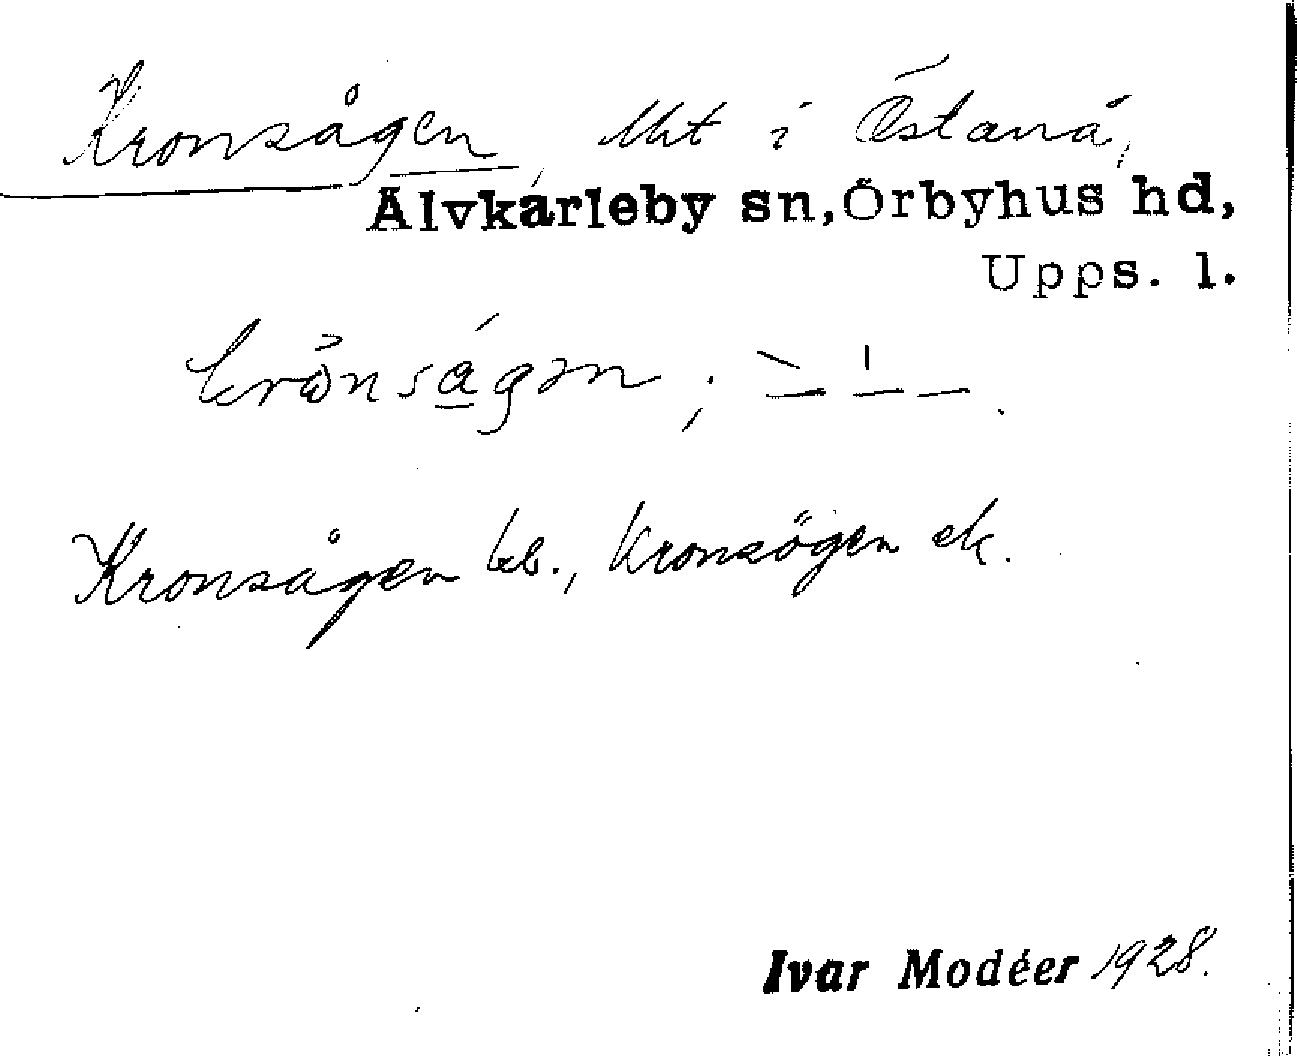 Kronsågen, Uht i Östanå,
Älvkarleby sn, Örbyhus hd,
Upps. l.
krònságən;
Kronsågen kb., Kronsögen ek.
Ivar Modéer 1928.